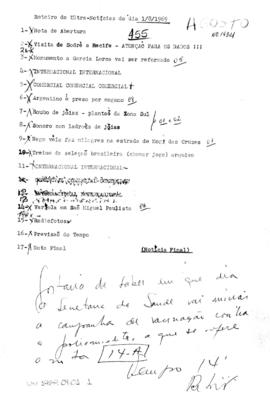 Roteiro de Ultra-Notícias do dia 1/8/1969
AGOSTO
455
1- Nota de Abertura
2- Visita de Sodré a Recife - ATENÇÃO PARA OS DADOS !!!
3- Monumento a Garcia Lorca vai ser reformado 05
4- INTERNACIONAL INTERNACIONAL
5- COMERCIAL COMERCIAL COMERCIAL
6- Argentino é preso por engano 01
7- Roubo de jóias - plantão da Zona Sul
01 e 02
8- Sonoro com ladrões de jóias
9- Cego vela faz milagres na estrada de Mogi das Cruzes 01
10- Treino da seleção brasileira (chamar jogo) arquivo
11- INTERNACIONAL INTERNACIONAL
14- Varíola em São Miguel Paulista 01
15- Radiofotos
16- Previsão do Tempo
17- Nota Final (Notícia Final)
Gostaria de saber em que dia
o Secretario da Saude vai iniciar
a campanha de vacinação contra
a poliomielite, a que se refere
a nota 14-A
Tempo '14'